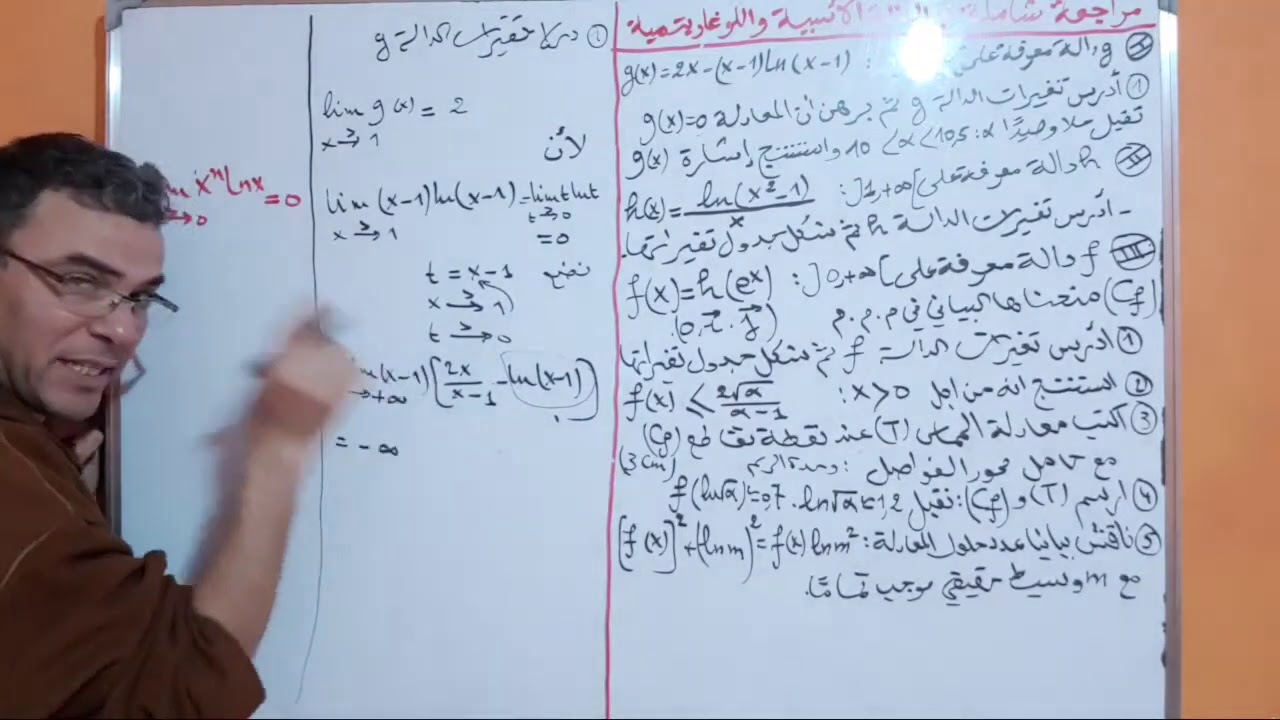 مراجعة شاملة الأسية واللوغاريتمية
I g دالة معرفة على : g(x)=2x-(x-1)ln(x-1)
① أدرس تغيرات الدالة g ثم برهن أن المعادلة g(x)=0
تقبل حلا وحيدًا α: 10<α<10,5 واستنتج إشارة g(x)
II h دالة معرفة على ]1,+∞[:
h(x)=ln(x²-1)/x
- أدرس تغيرات الدالة h ثم شكل جدول تغيراتها.
III f دالة معرفة على ]0,+∞[: f(x)=h(eˣ)
(Cf) منحناها البياني في م.م.م (o,i,j)
① أدرس تغيرات الدالة f ثم شكل جدول تغيراتها
② استنتج انه من اجل x>0: f(x) ≤ 2√α/(α-1)
③ اكتب معادلة المماس (T) عند نقطة تقاطع (Cf)
مع حامل محور الفواصل وحدة الرسم: (3cm)
④ ارسم (T) و (Cf): نقبل ln√α≈1,2 . f(ln√α)≈0,7
⑤ ناقش بيانيا عدد حلول المعادلة: [f(x)]²+(lnm)²=f(x)lnm²
مع m وسيط حقيقي موجب تمامًا.
① دراسة تغيرات الدالة g
lim g(x) = 2
x→1
لأن
lim (x-1)ln(x-1) = lim t lnt
x→1 t→0
=0
نضع t = x-1
x → 1
t → 0
(x-1)[2x/(x-1) - ln(x-1)]
→+∞
= -∞
xⁿlnx = 0
→0